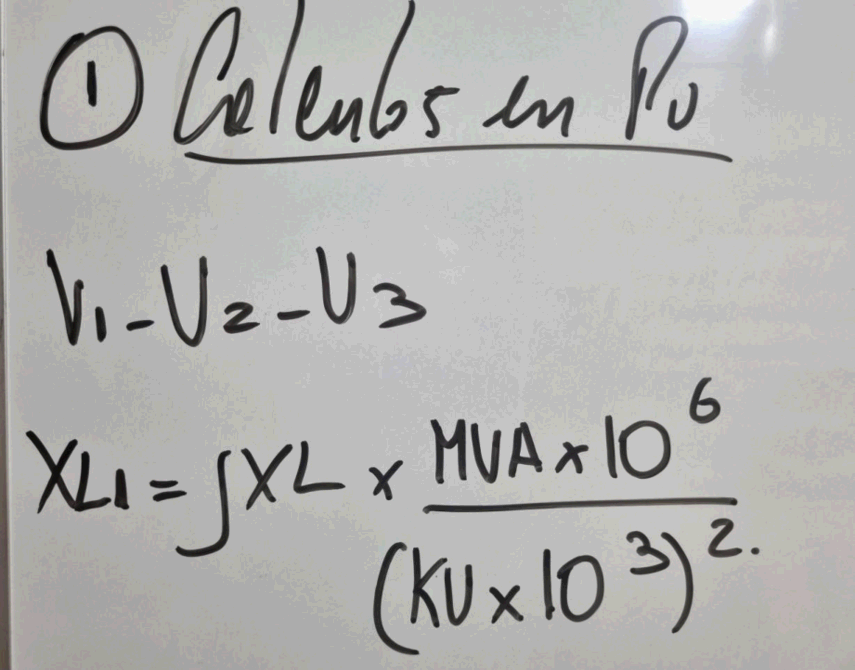 ① Calculos en Pu
V1 - V2 - V3
XL1 = jXL x MVA x 10^6 / (KV x 10^3)^2.